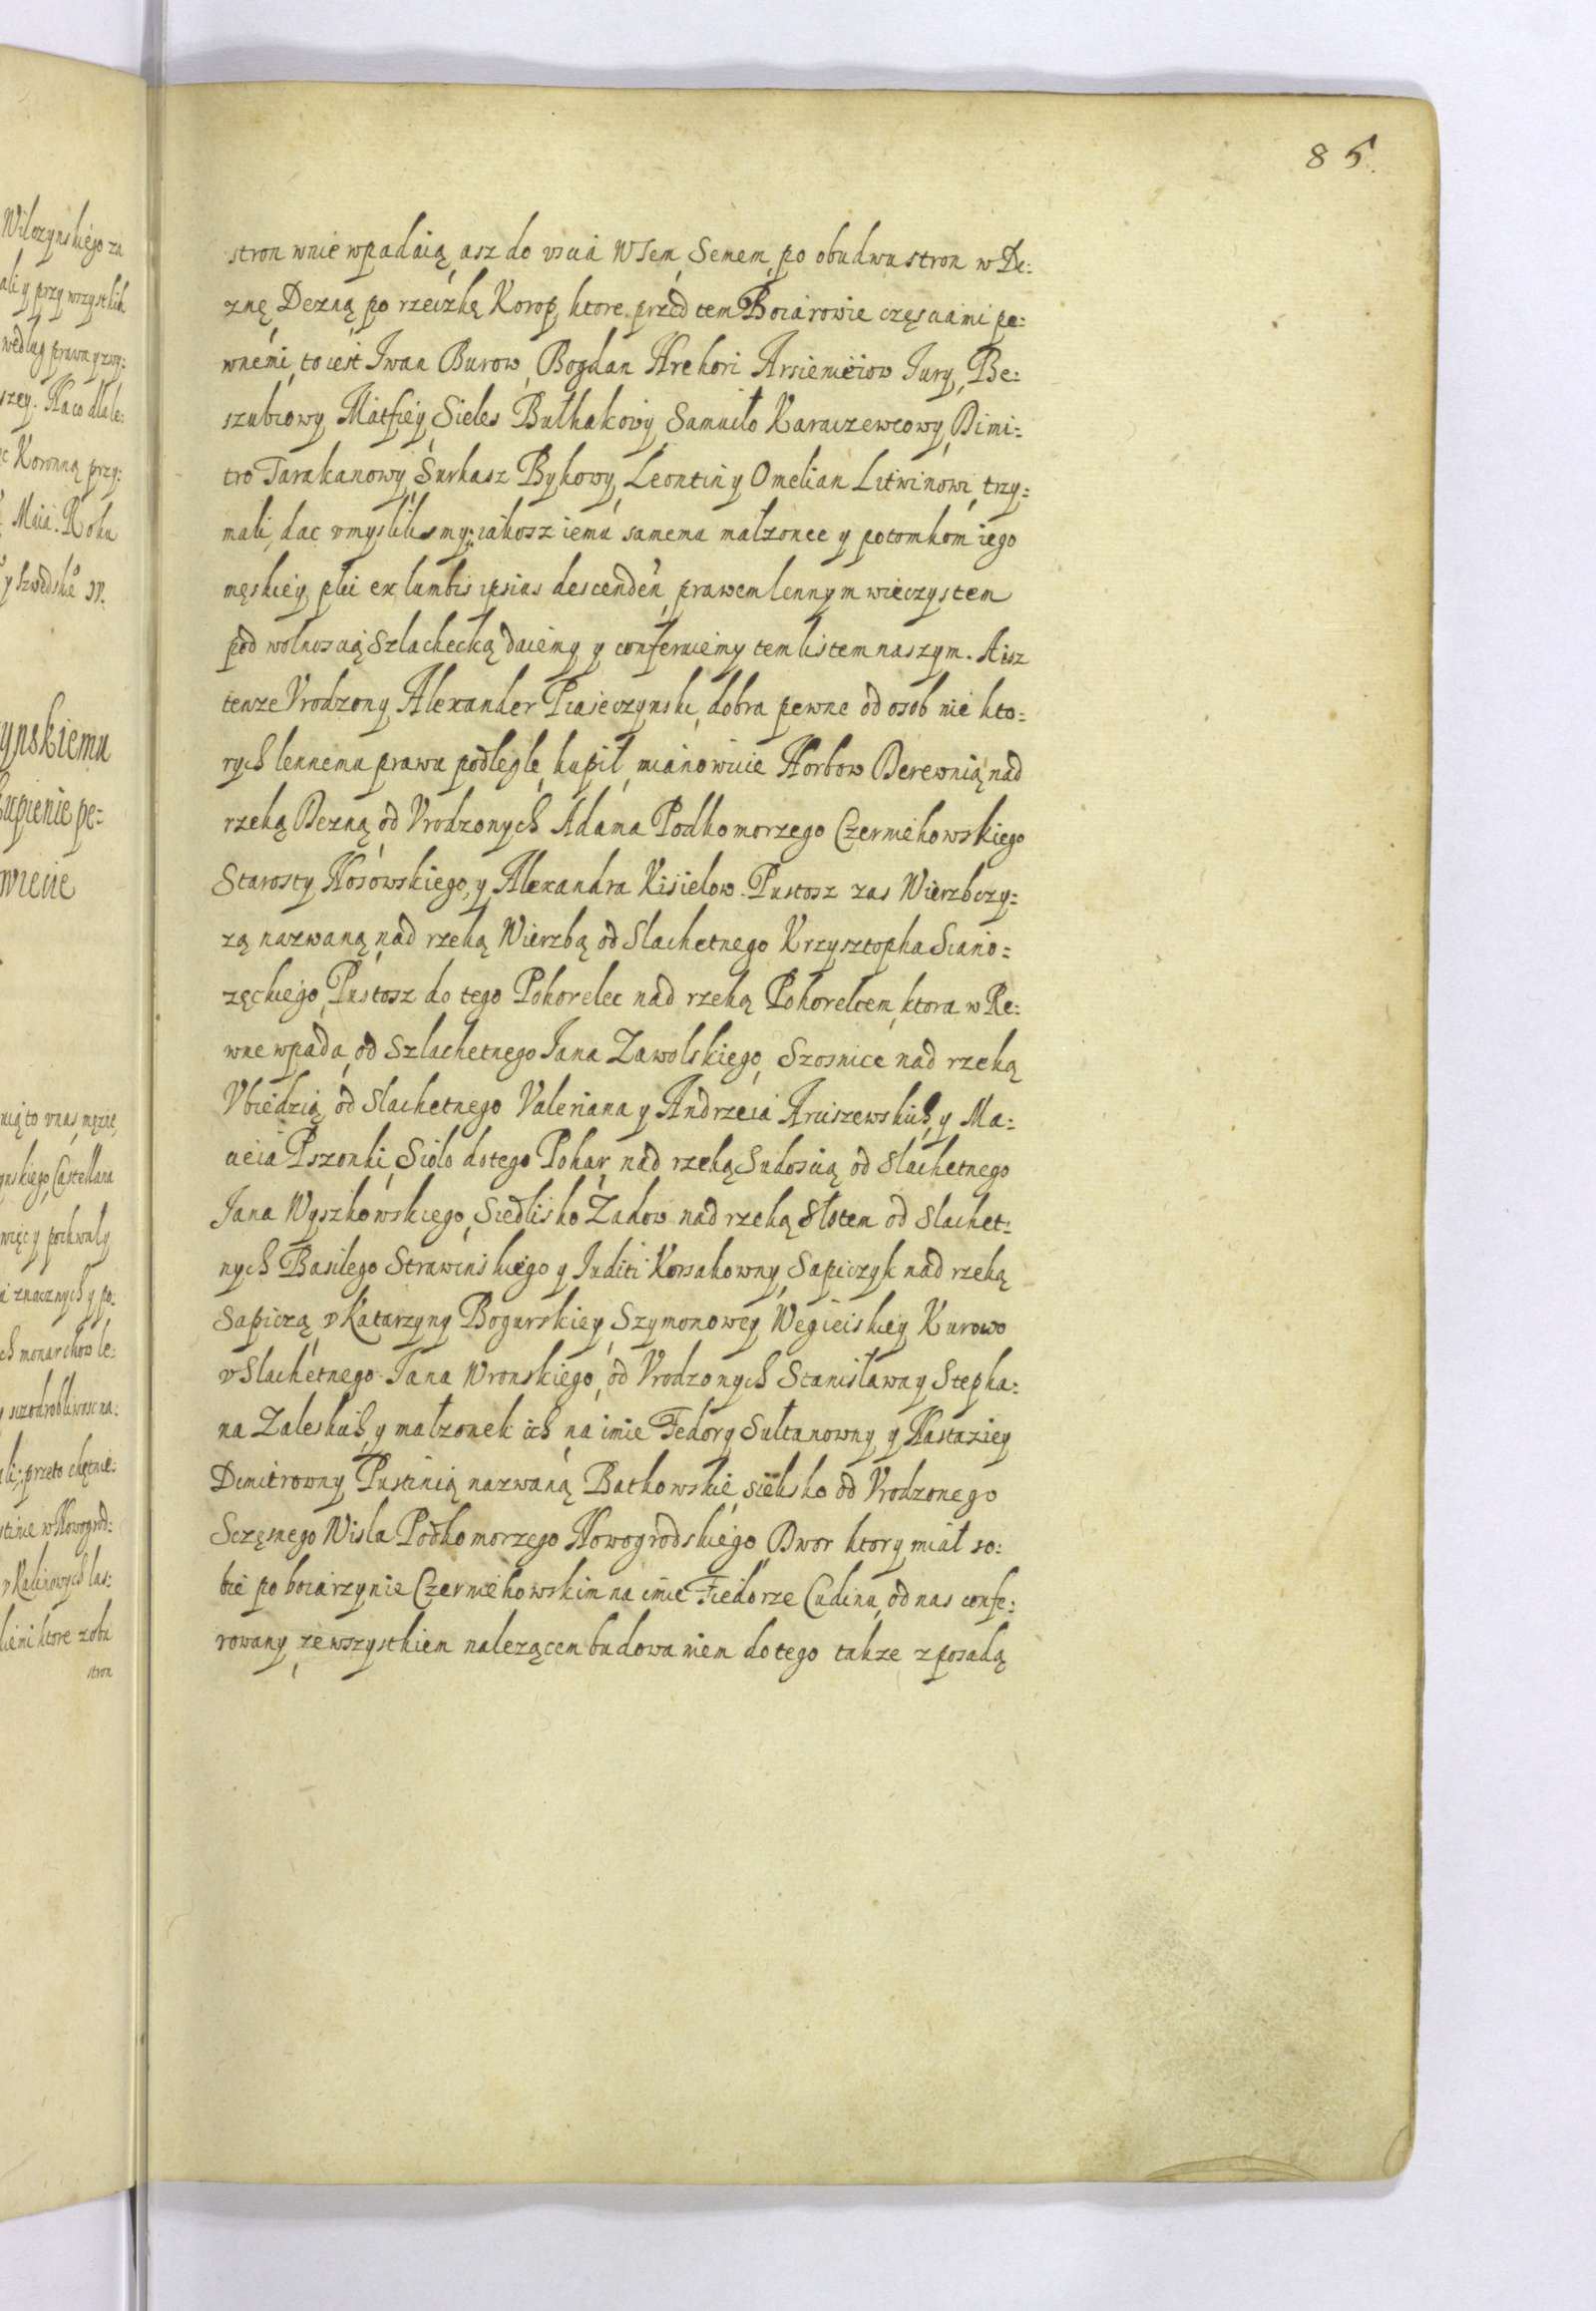 85.
stron wnie wpadaią, asz do vscia WSem, Semem, po obudwu stron w De:
znę Dezną po rzeczkę Korop, ktore przed tem Boiarowie częsciami pe:
wnemi, to iest Iwan Burow, Bogdan Hrehori Arsienieiow Jury, Be:
szubiowy, Matfiey Sieles Bułhakowy, Samuiło Karaczewcowy, Dimi:
tro Tarakanowy, Surkasz Bykowy, Leontin y Omelian Litwinowi, trzy:
mali, dac vmyslilismy: iakosz iemu samemu małzonce y potomkom iego
męskiey płci ex lumbis ipsius descenden, prawem lennym wieczystem
pod wolnoscią Szlachecką daiemy y conferuiemy tem listem naszym. A isz
tenze Vrodzony Alexander Piaseczynski, dobra pewne od osob nie kto:
rych lennemu prawu podległe, kupił, mianowicie Horbow Derewnią nad
rzeką Dezną, od Vrodzonych Adama Podkomorzego Czerniehowskiego
Starosty Nosowskiego, y Alexandra Kisielow. Pustosz zas Wierzbczy:
zą nazwaną, nad rzeką Wierzbą od Slachetnego Krzysztopha Sciano:
zęckiego, Pustosz do tego Pohorelec nad rzeką Pohorelcem, ktora w Re:
wne wpada, od Szlachetnego Jana Zawolskiego, Szosnice nad rzeką
Vbiedzią od Slachetnego Valeriana y Andrzeia Arciszewskich, y Ma:
cieia Pszonki, Sioło do tego Pohar, nad rzeką Sudoscią od Slachetnego
Jana Wyszkowskiego, Siedlisko Zadow nad rzeką Słotem od Slachet:
nych Basilego Strawinskiego y Juditi Korsakowny, Sapiczyk nad rzeką
Sapiczą, v Katarzyny Bogurskiey, Szymonowey Wegieiskiey Kurowo
v Slachetnego Jana Wronskiego, od Vrodzonych Stanisława y Stepha:
na Zaleskich, y małzonek ich na imie Fedory Sułtanowny y Nastaziey
Dmitrowny Pustinią nazwaną Batkowskie sielisko od Vrodzonego
Sczęsnego Wisla Podkomorzego Nowogrodskiego, Dwor ktory miał so:
bie po boiarzynie Czerniehowskim na imie Fiedorze Cudinu, od nas confe:
rowany, ze wszystkiem nalezącem budowaniem do tego takze z posadą